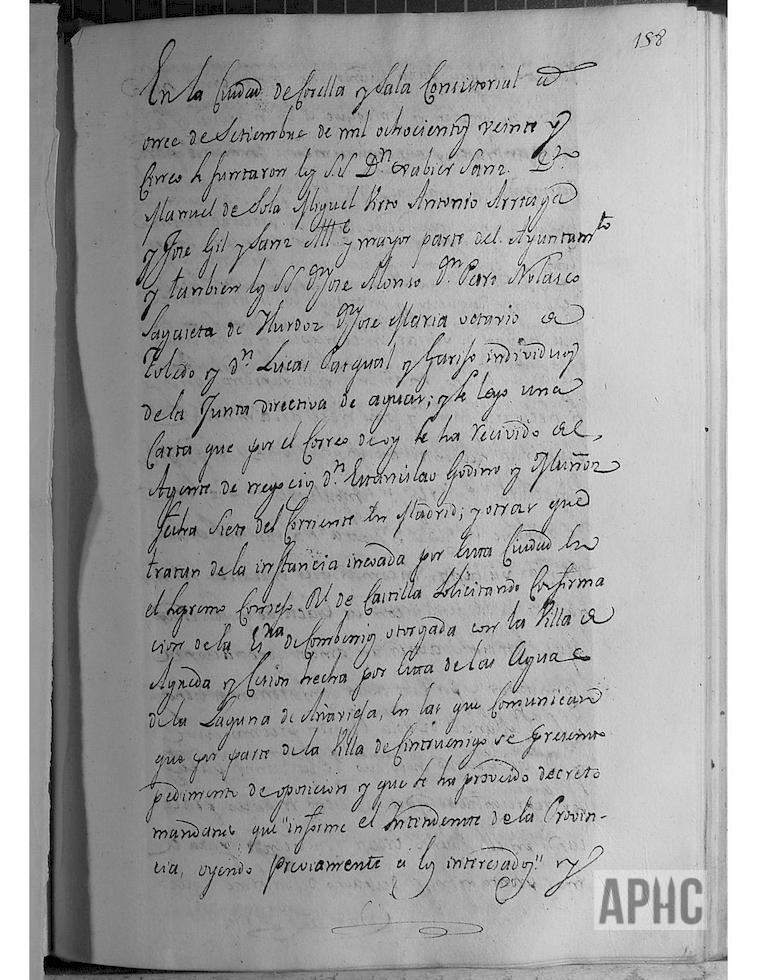 158
En la Ciudad de Corella y Sala Consistorial a
once de Setiembre de mil ochocientos veinte y
cinco se juntaron los SS Dn Xabier Sanz Dn
Manuel de Sola Miguel Antonio Arriaga
y Jose Gil y Sanz y mayor parte del Ayuntamto
y tambien los SS Dn Jose Alonso Dn Pedro Nolasco
Sagaseta de Ylurdoz Dn Jose Maria octavio de
Toledo y dn Lucas Pasqual y Garijo individuos
de la Junta directiva de aguas; y se leyo una
Carta que por el Correo de oy se ha recivido del
Agente de negocios dn Estanislao Godino y Muñoz
fecha siete del Corriente en Madrid; y otras que
tratan de la instancia incoada por esta Ciudad en
el Supremo Consejo Rl de Castilla solicitando Confirma
cion de la Esra de Combenios otorgada con la Villa de
Agreda y Cesion hecha por esta de las Aguas
de la Laguna de Añavieja, en las que Comunican
que por parte de la Villa de Cintruenigo se presento
pedimento de oposicion y que se ha proveido decreto
mandando que "informe el Intendente de la Provin-
cia, oyendo previamente a los interesados" y
APHC